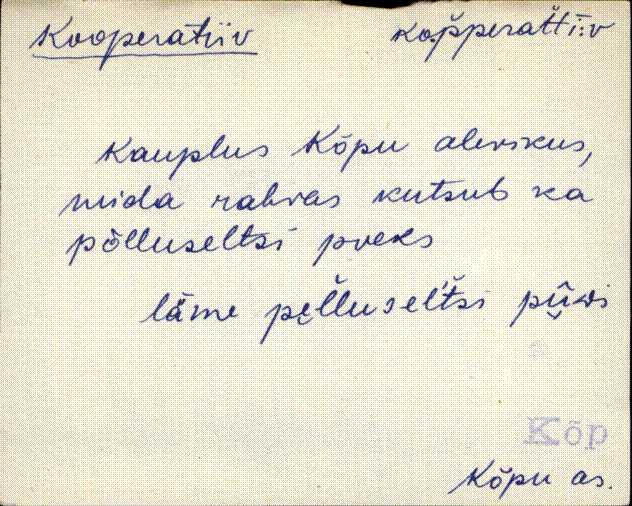 Kooperatiiv kop̆peratti:v
Kauplus Kõpu alevikus,
mida rahvas kutsub ka
põlluseltsi poeks
läme pe̮l̆luseĺtsi pûwdi
Kõp
Kõpu as.